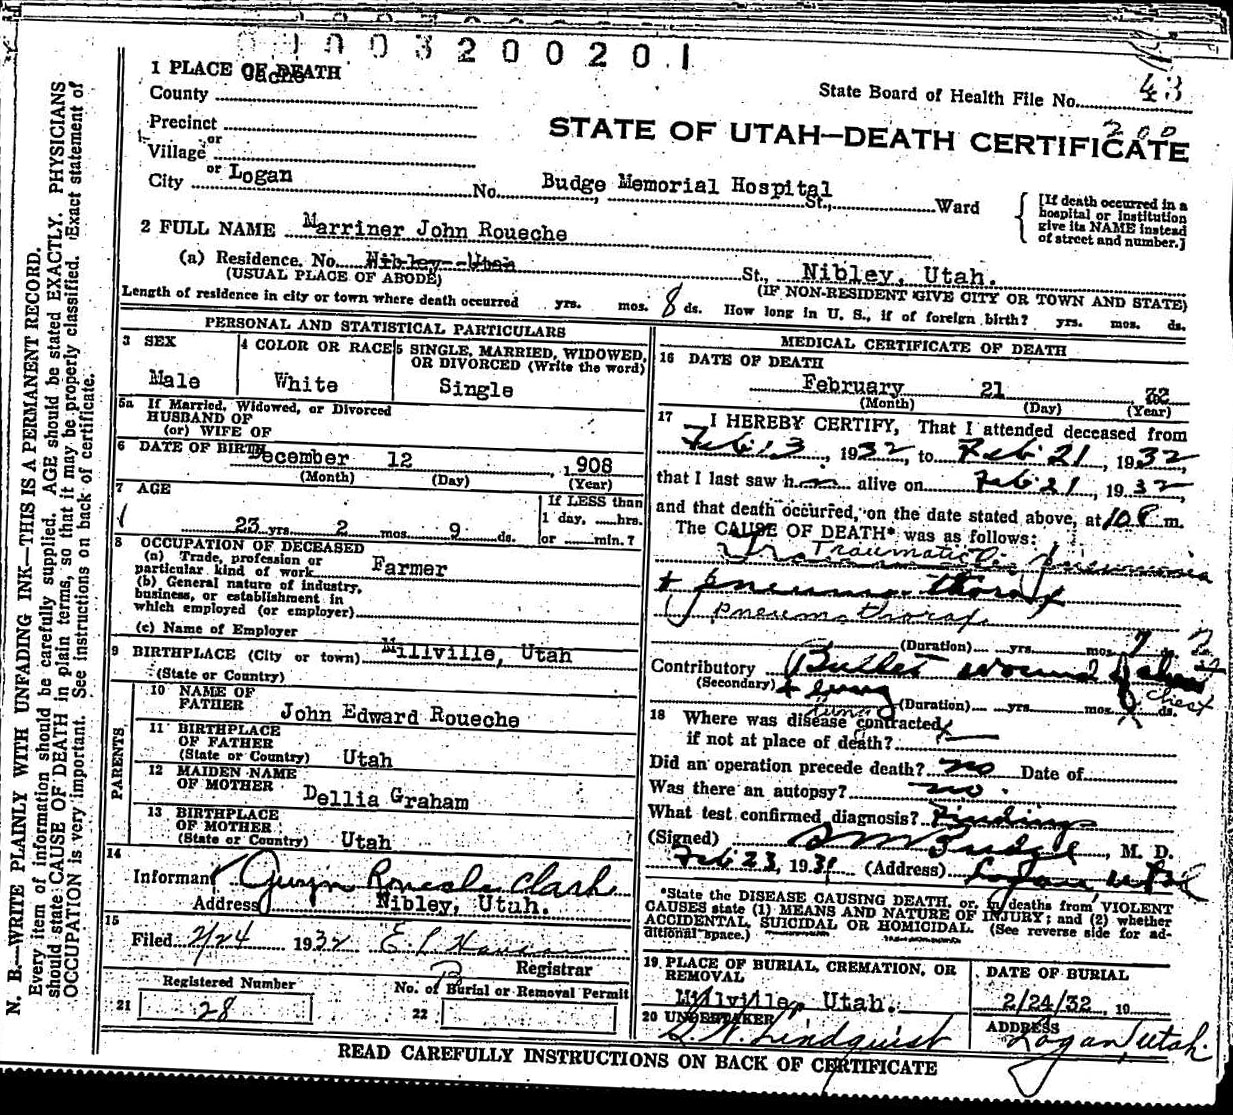 1003200201
1 PLACE OF DEATH
Cache
County
State Board of Health File No. 43
200
Precinct
or
Village
STATE OF UTAH—DEATH CERTIFICATE
or
City Logan No. Budge Memorial Hospital St., Ward
[If death occurred in a
hospital or institution
give its NAME instead
of street and number.]
2 FULL NAME Marriner John Roueche
(a) Residence. No. Nibley--Utah St., Nibley, Utah.
(USUAL PLACE OF ABODE) (IF NON-RESIDENT GIVE CITY OR TOWN AND STATE)
Length of residence in city or town where death occurred yrs. mos. 8 ds. How long in U. S., if of foreign birth? yrs. mos. ds.
PERSONAL AND STATISTICAL PARTICULARS
3 SEX
Male
4 COLOR OR RACE
White
5 SINGLE, MARRIED, WIDOWED,
OR DIVORCED (Write the word)
Single
5a If Married, Widowed, or Divorced
HUSBAND OF
(or) WIFE OF
6 DATE OF BIRTH
December 12, 1908
(Month) (Day) (Year)
7 AGE
23 yrs. 2 mos. 9 ds.
If LESS than
1 day, hrs.
or min.?
8 OCCUPATION OF DECEASED
(a) Trade, profession or
particular kind of work Farmer
(b) General nature of industry,
business, or establishment in
which employed (or employer)
(c) Name of Employer
9 BIRTHPLACE (City or town) Millville, Utah
(State or Country)
PARENTS
10 NAME OF
FATHER John Edward Roueche
11 BIRTHPLACE
OF FATHER
(State or Country) Utah
12 MAIDEN NAME
OF MOTHER Dellia Graham
13 BIRTHPLACE
OF MOTHER
(State or Country) Utah
14
Informant Gwyn Roueche Clark
Address Nibley, Utah.
15
Filed 2/24 1932
Registrar
Registered Number
21 28
No. of Burial or Removal Permit
22
MEDICAL CERTIFICATE OF DEATH
16 DATE OF DEATH
February 21 32
(Month) (Day) (Year)
17 I HEREBY CERTIFY, That I attended deceased from
Feb 13, 1932, to Feb 21, 1932,
that I last saw h m alive on Feb 21, 1932,
and that death occurred, on the date stated above, at 10 P m.
The CAUSE OF DEATH* was as follows:
Traumatic pneumonia
+ pneumo-thorax
pneumothorax
(Duration) yrs. mos. 7
Contributory Bullet wound of chest
(Secondary) + lung chest
lung (Duration) yrs. mos. ds.
18 Where was disease contracted
if not at place of death?
Did an operation precede death? no Date of
Was there an autopsy? no.
What test confirmed diagnosis? Findings
(Signed) S M Budge, M. D.
Feb 23, 193 (Address) Logan, Utah
*State the DISEASE CAUSING DEATH, or, in deaths from VIOLENT
CAUSES state (1) MEANS AND NATURE OF INJURY; and (2) whether
ACCIDENTAL, SUICIDAL OR HOMICIDAL. (See reverse side for ad-
ditional space.)
19 PLACE OF BURIAL, CREMATION, OR
REMOVAL
Millville, Utah.
DATE OF BURIAL
2/24/32, 19
20 UNDERTAKER
Lindquist
ADDRESS
Logan, Utah.
READ CAREFULLY INSTRUCTIONS ON BACK OF CERTIFICATE
N. B.—WRITE PLAINLY WITH UNFADING INK—THIS IS A PERMANENT RECORD.
Every item of information should be carefully supplied. AGE should be stated EXACTLY. PHYSICIANS
should state CAUSE OF DEATH in plain terms, so that it may be properly classified. Exact statement of
OCCUPATION is very important. See instructions on back of certificate.